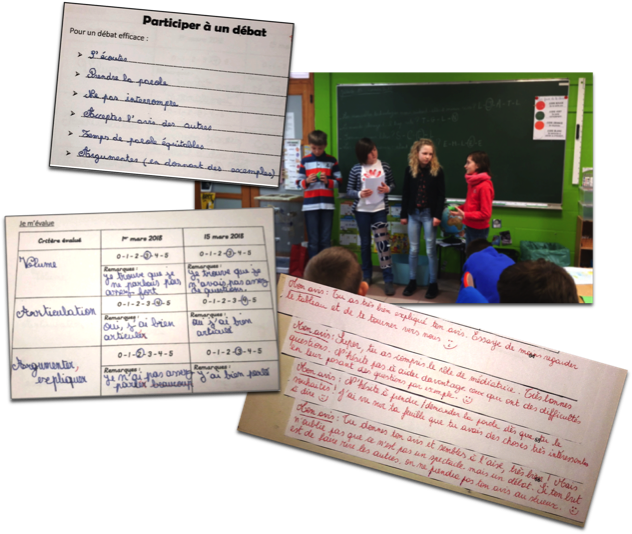 Participer à un débat
Pour un débat efficace :
➤ S'écouter
➤ Prendre la parole
➤ Ne pas interrompre
➤ Accepter l'avis des autres
➤ Temps de parole équitables
➤ Argumenter (en donnant des exemples)
Je m'évalue
Critère évalué 1er mars 2018 15 mars 2018
Volume 0-1-2-3-4-5 0-1-2-3-4-5
Remarques : Remarques :
Je trouve que je Je trouve que je
ne parlais pas n'avais pas assez
assez fort de questions.
Articulation 0-1-2-3-4-5 0-1-2-3-4-5
Remarques : Remarques :
Oui, j'ai bien j'ai bien
articulé
Argumenter, 0-1-2-3-4-5 0-1-2-3-4-5
expliquer Remarques : Remarques :
Je n'ai pas assez j'ai bien parlé
parler beaucoup
Mon avis : Tu as très bien expliqué ton avis. Essaye de moins regarder
le tableau et de te tourner vers nous ☺
Mon avis : Super, tu as compris le rôle de médiatrice. Très bonnes
questions. N'hésite pas à aider davantage ceux qui ont des difficultés
en leur posant des questions par exemple. ☺
Mon avis : N'hésite à prendre/demander la parole dès que tu le
souhaites ! J'ai vu sur ta feuille que tu avais des choses très intéressantes
à dire ☺
Mon avis : Tu donnes ton avis et sembles à l'aise, très bien ! Mais
n'oublie pas que ce n'est pas un spectacle, mais un débat. Si ton but
est de faire rire les autres, on ne prendra pas ton avis au sérieux. ☺